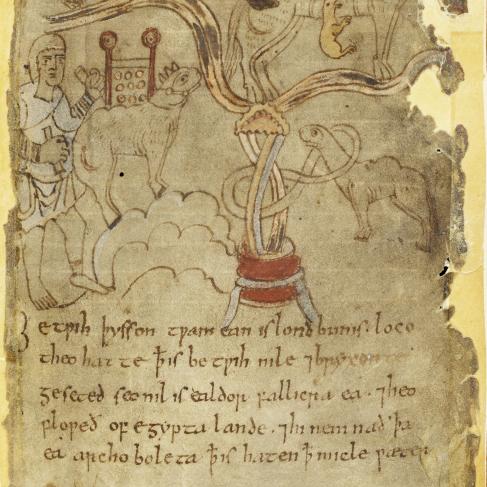 Betƿih þysson tƿam ean is lond bunis · loco
theo hatte ꝥ is betƿih nile ⁊ brixonte
geseted seo nil is ealdor fallicra ea · ⁊ heo
floƿeð of egypta lande · ⁊ hi nemnað þa
ea archoboleta ꝥ is haten ꝥ micle ƿæter